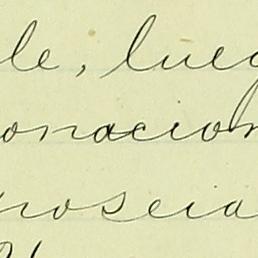 le, lueg
onacion
noscia